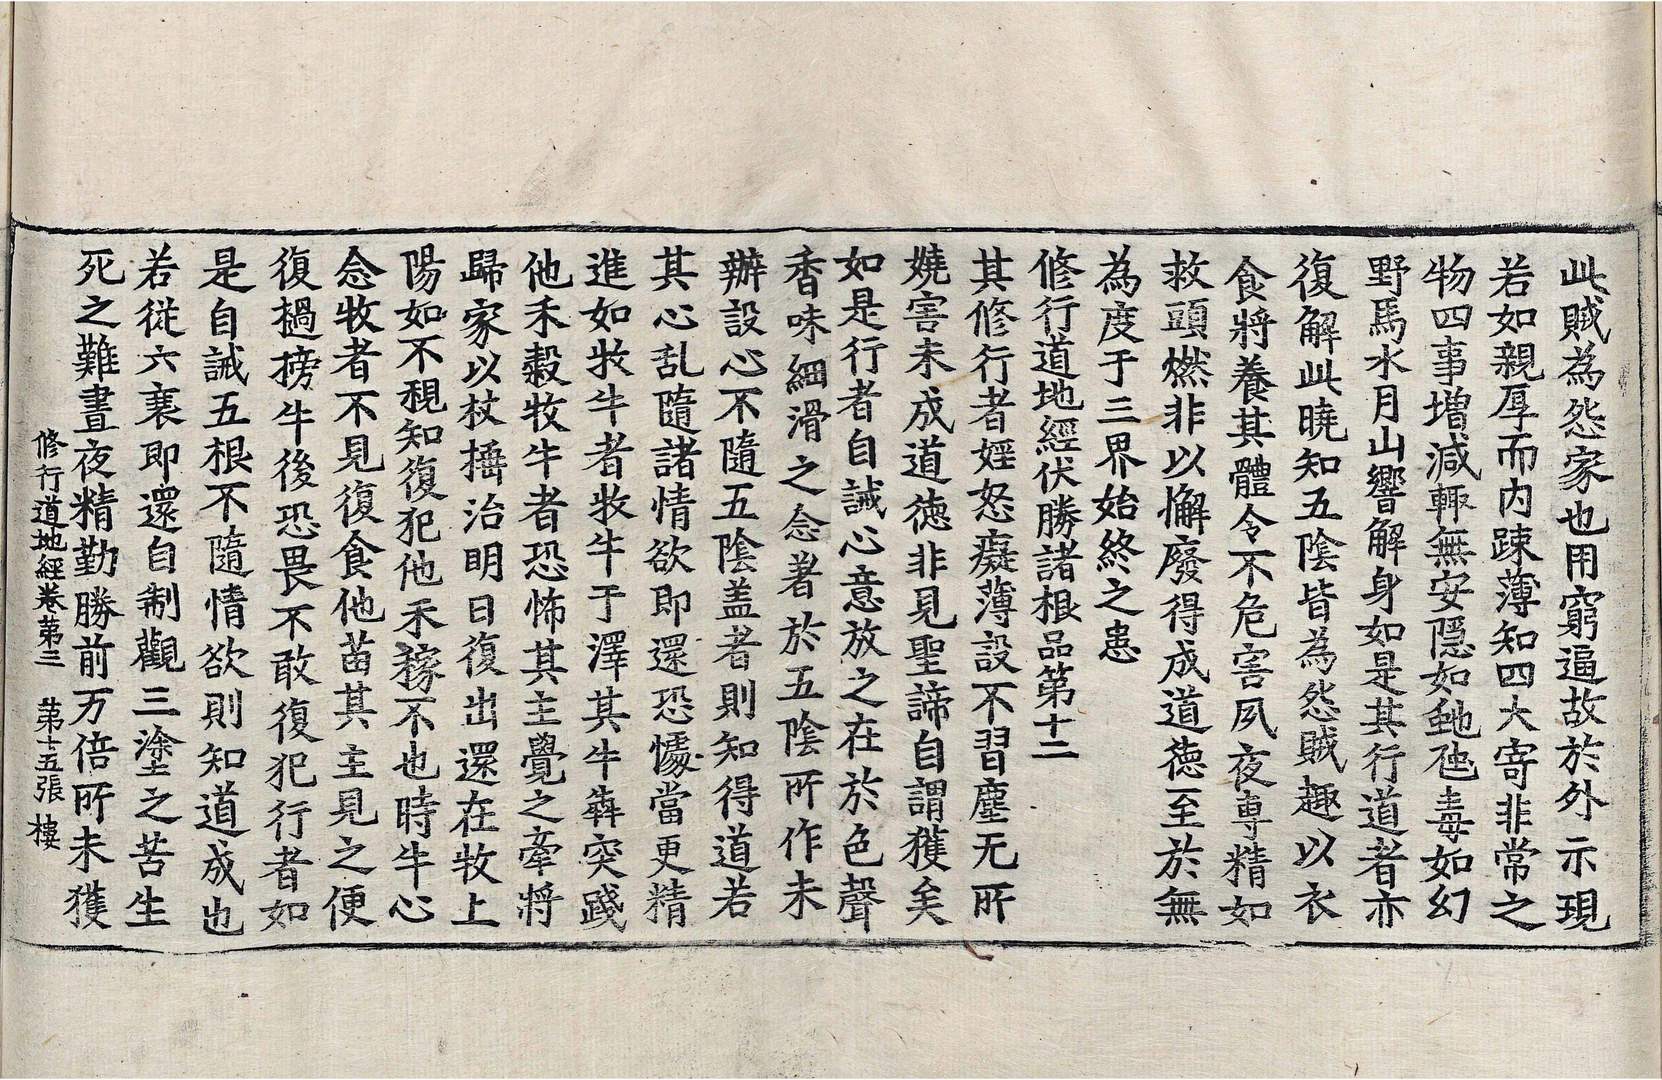 此賊為怨家也用窮逼故於外示現
若如親厚而内踈薄知四大寄非常之
物四事增減輒無安隱如虵虺毒如幻
野馬水月山響解身如是其行道者亦
復解此曉知五陰皆為怨賊趣以衣
食將養其體令不危害夙夜専精如
救頭燃非以懈廢得成道德至於無
為度于三界始終之患
修行道地經伏勝諸根品第十二
其修行者婬怒癡薄設不習塵无所
嬈害未成道德非見聖諦自謂獲矣
如是行者自誡心意放之在於色聲
香味細滑之念著於五陰所作未
辦設心不隨五陰盖者則知得道若
其心乱隨諸情欲即還恐懅當更精
進如牧牛者牧牛于澤其牛犇突踐
他禾穀牧牛者恐怖其主覺之牽將
歸家以杖捶治明日復出還在牧上
陽如不視知復犯他禾稼不也時牛心
念牧者不見復食他苗其主見之便
復檛搒牛後恐畏不敢復犯行者如
是自誡五根不隨情欲則知道成也
若從六衰即還自制觀三塗之苦生
死之難晝夜精勤勝前万倍所未獲
修行道地經卷第三 第十五張 樓